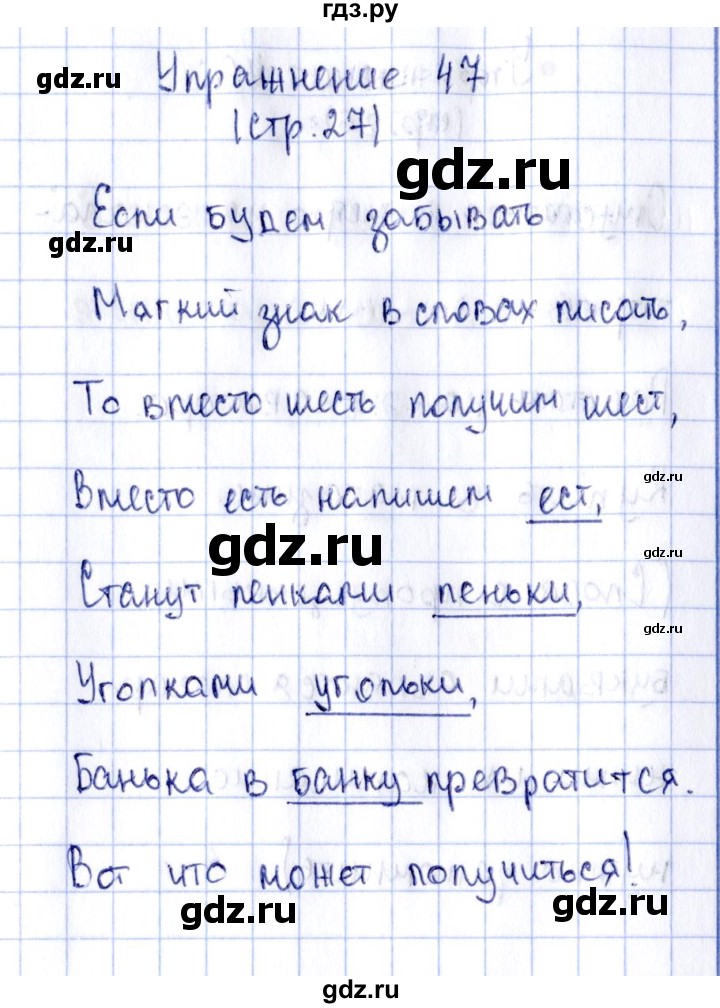 гдз.ру
gdz.ru
Упражнение 47
(стр. 27)
gdz.ru
Если будем забывать
gdz.ru
Мягкий знак в словах писать,
То вместо шесть получим шест,
gdz.ru
Вместо есть напишем ест,
gdz.ru
gdz.ru
Станут пенками пеньки,
gdz.ru
Уголками угольки,
Банька в банку превратится.
Вот что может получиться!
gdz.ru
gdz.ru
gdz.ru